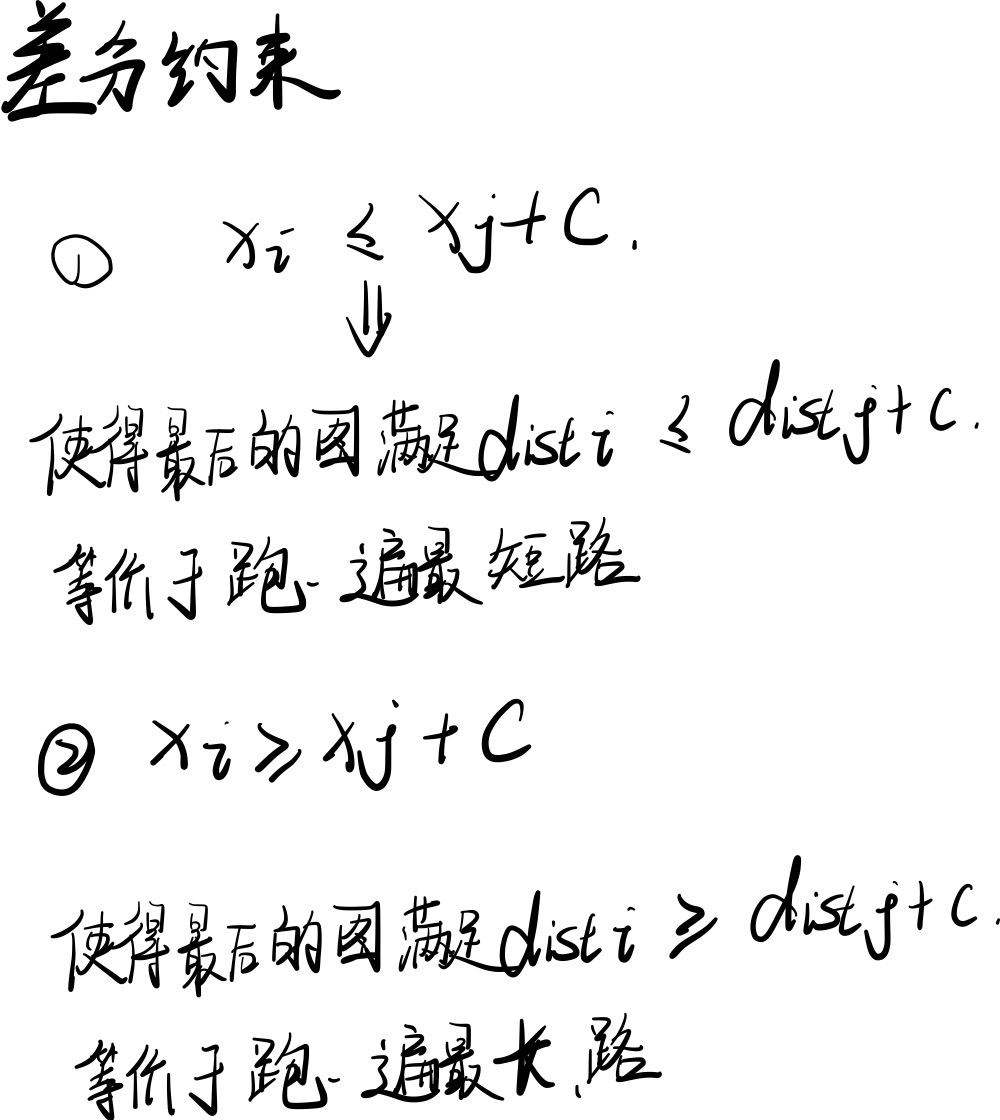 差分约束
① xi ≤ xj+C.
⇓
使得最后的图满足disti ≤ distj+C.
等价于跑一遍最短路
② xi≥xj+C
使得最后的图满足disti ≥ distj+C.
等价于跑一遍最长路